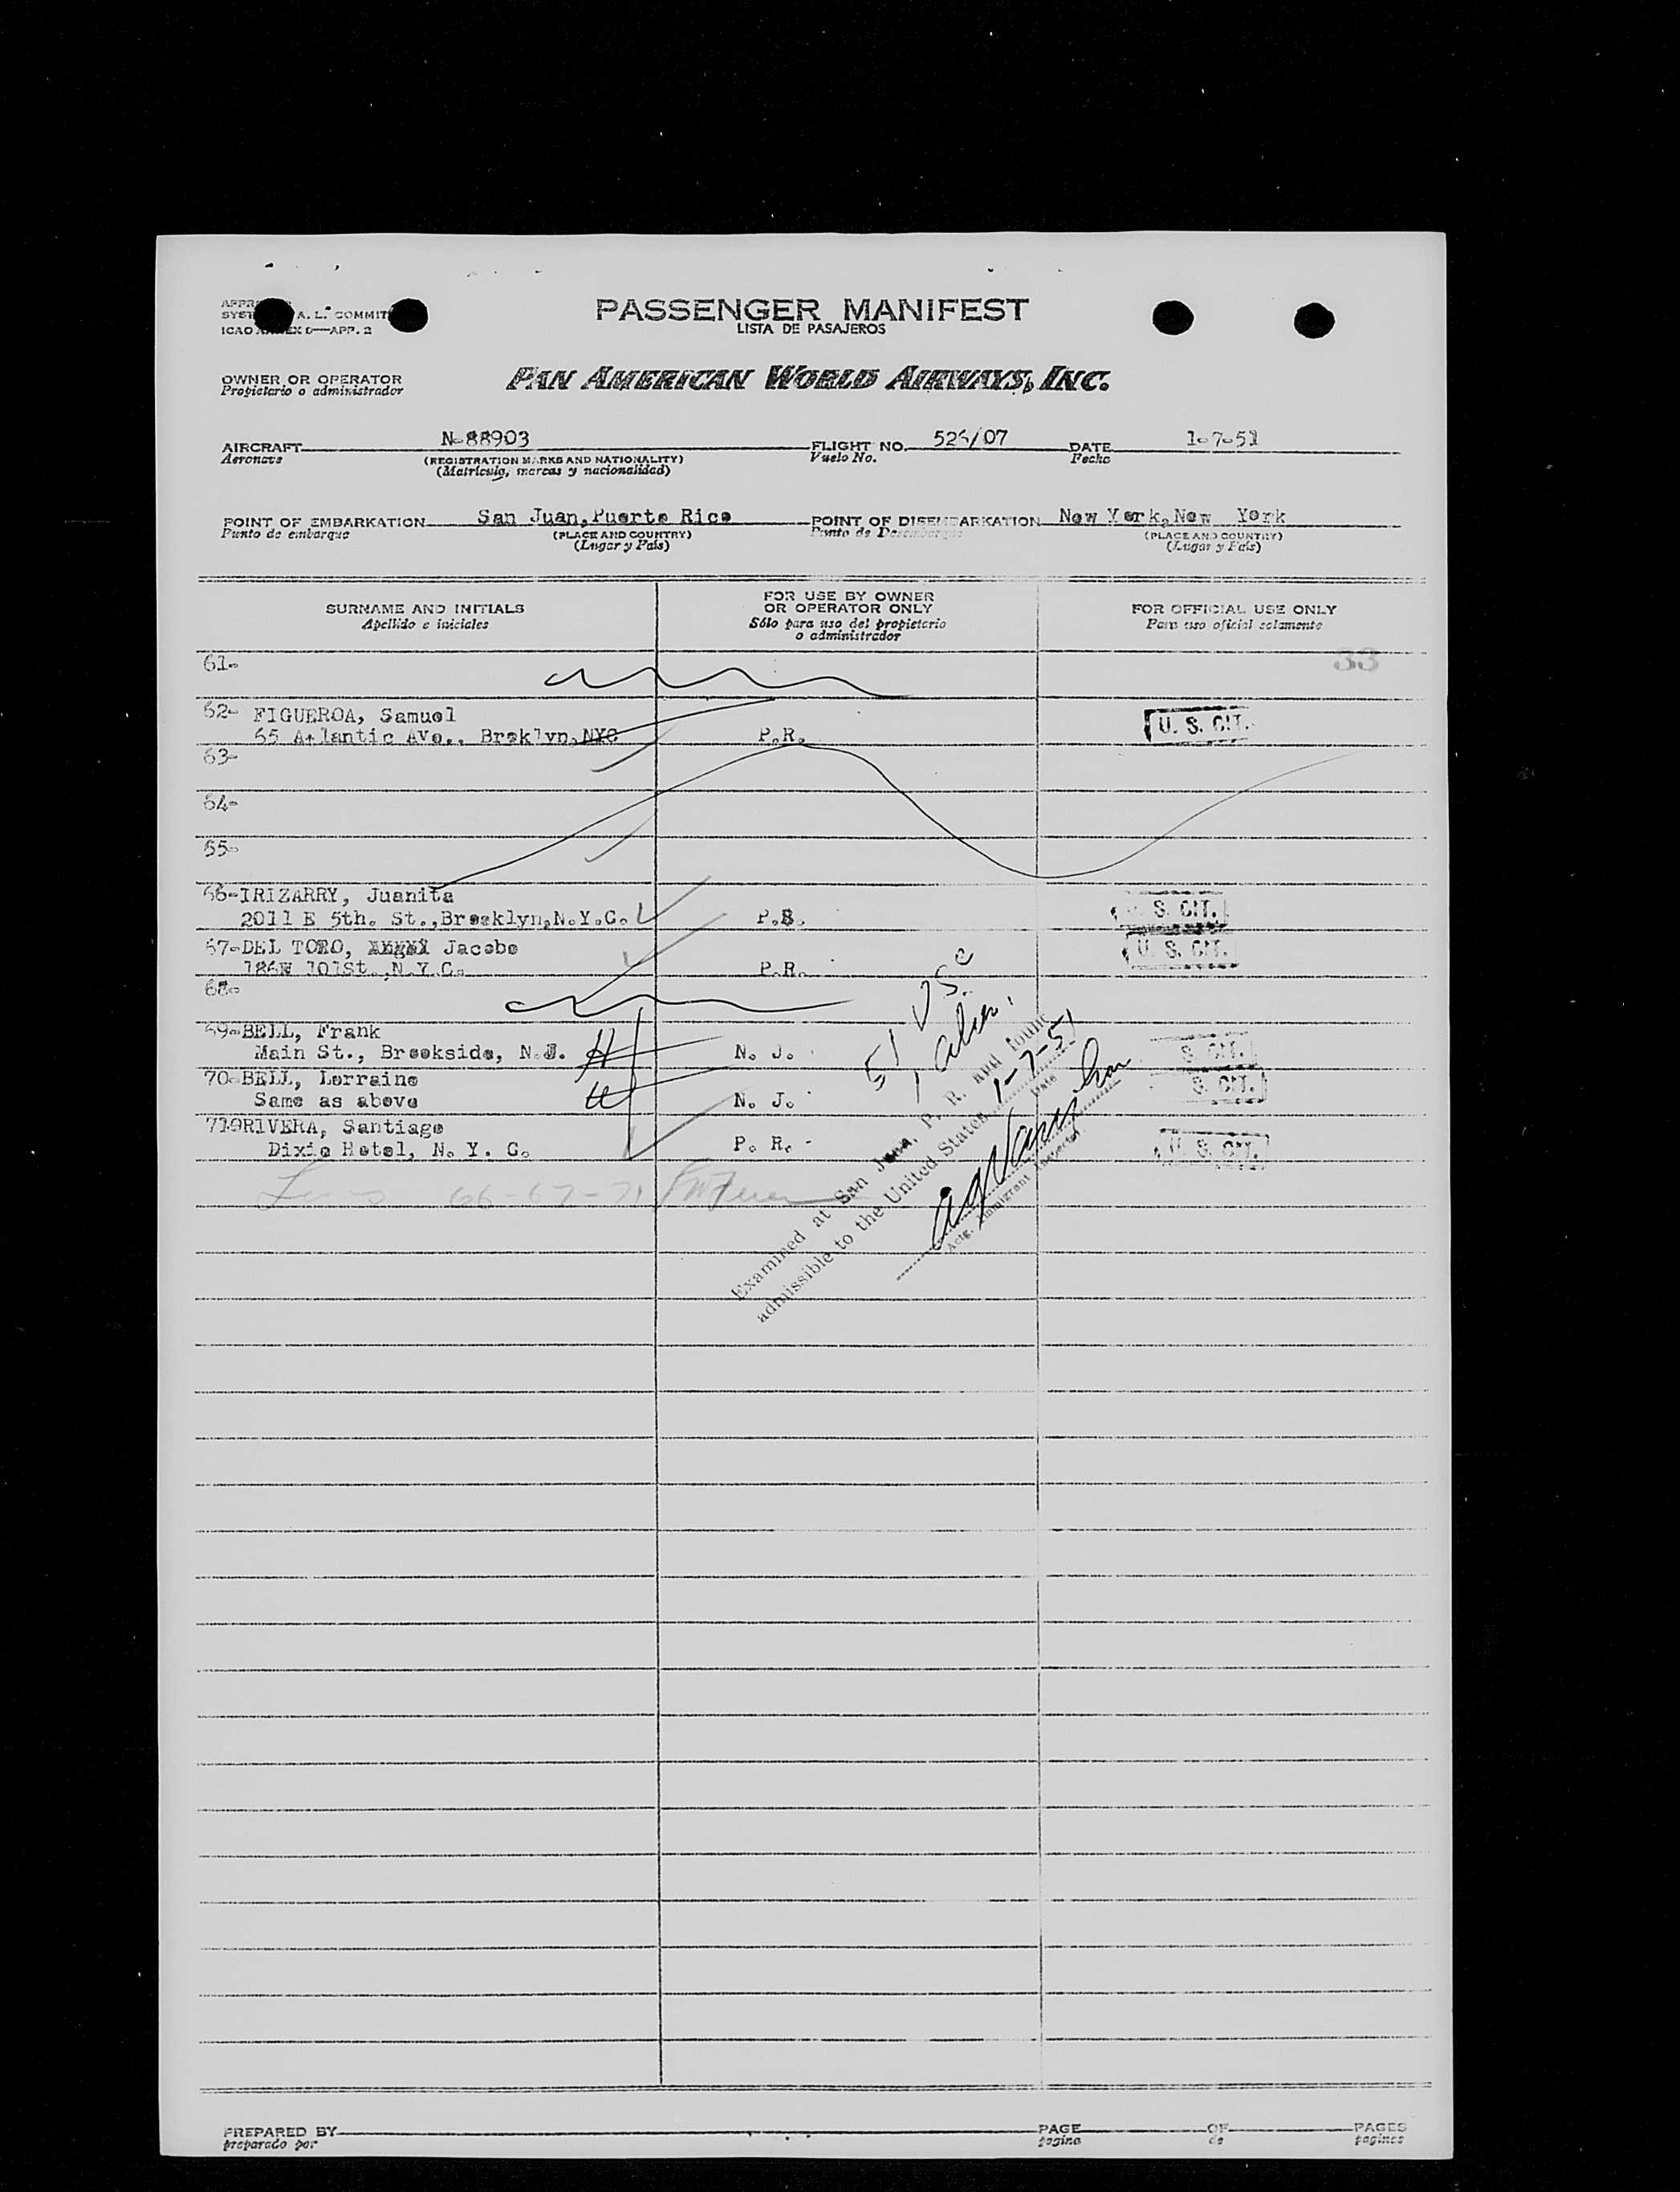 PASSENGER MANIFEST
LISTA DE PASAJEROS
A. L. COMMIT
ICAO ANNEX 9—APP. 2
OWNER OR OPERATOR
Propietario o administrador
PAN AMERICAN WORLD AIRWAYS, INC.
AIRCRAFT N-88903 FLIGHT NO. 526/07 DATE 1-7-51
Aeronave (REGISTRATION MARKS AND NATIONALITY) Vuelo No. Fecha
(Matrícula, marcas y nacionalidad)
POINT OF EMBARKATION San Juan, Puerto Rico POINT OF DISEMBARKATION New York, New York
Punto de embarque (PLACE AND COUNTRY) Punto de Desembarque (PLACE AND COUNTRY)
(Lugar y País) (Lugar y País)
SURNAME AND INITIALS FOR USE BY OWNER OR OPERATOR ONLY FOR OFFICIAL USE ONLY
Apellido e iniciales Sólo para uso del propietario o administrador Para uso oficial solamente
61- 33
62- FIGUEROA, Samuel U. S. CIT.
65 Atlantic AVe., Broklyn, NYC P.R.
63-
64-
65-
66-IRIZARRY, Juanita
2011 E 5th. St., Brooklyn, N.Y.C. P.R. U. S. CIT.
67-DEL TORO, Jacobo U. S. CIT.
186W 101St., N.Y.C. P.R.
68-
51 USC
1 alien
69-BELL, Frank
Main St., Brookside, N.J. N. J. S. CIT.
70-BELL, Lorraine S. CIT.
Same as above N. J.
71-RIVERA, Santiago
Dixie Hotel, N. Y. C. P. R. U. S. CIT.
66-67-71
Examined at San Juan, P. R. and found
admissible to the United States 1-7-51
Date
Actg. Immigrant Inspector
PREPARED BY PAGE OF PAGES
preparado por pagina de paginas